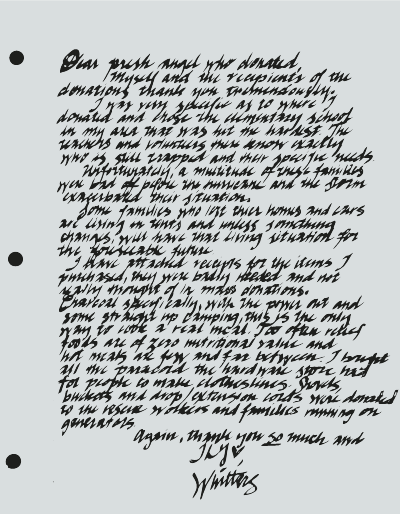 Dear fresh angel who donated,
Myself and the recipients of the
donations thank you tremendously.
I was very specific as to where I
donated and chose the elementary school
in my area that was hit the hardest. The
teachers and volunteers there know exactly
who is still trapped and their specific needs.
Unfortunately, a multitude of these families
were bad off before the hurricane and the storm
exacerbated their situation.
Some families who lost their homes and cars
are living in tents and unless something
changes, will have that living situation for
the foreseeable future.
I have attached receipts for the items I
purchased, they were badly needed and not
really thought of in mass donations.
Charcoal specifically, with the power out and
some straight up camping, this is the only
way to cook a real meal. Too often relief
foods are of zero nutritional value and
hot meals are few and far between. I bought
all the paracord the hardware store had
for people to make clotheslines. Shovels,
buckets and drop/extension cords were donated
to the rescue workers and families running on
generators.
Again, thank you so much and
ILY
Whitters